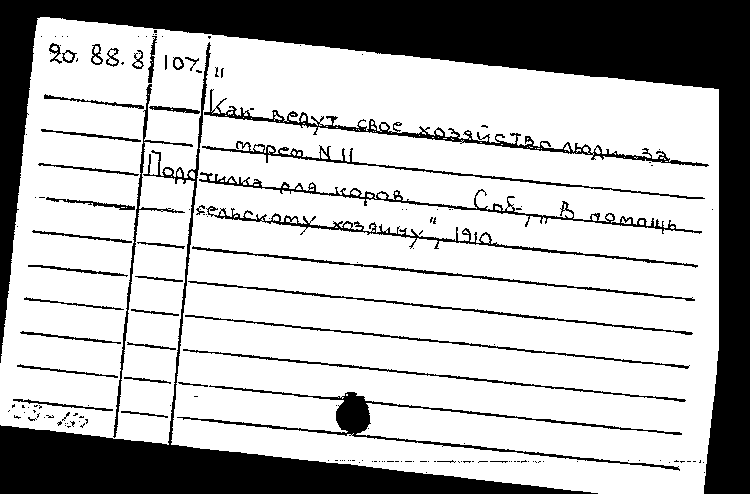 20. 88. 8. 107. "
Как ведут свое хозяйство люди за
морем N 11
Подстилка для коров. Спб., "В помощь
сельскому хозяину", 1910.